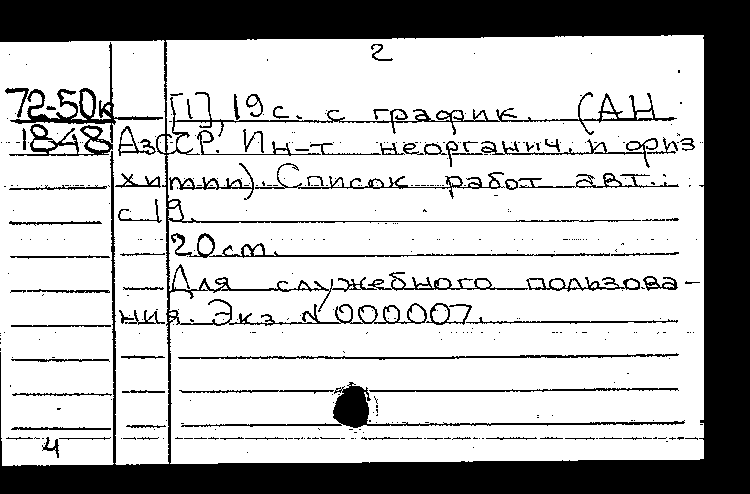 2
72-50к [1], 19 с. с график. (АН
1848 АзССР. Ин-т неорганич. и физ
химии). Список работ авт.:
с 19.
20 см.
Для служебного пользова-
ния. Экз. N 000007.
4